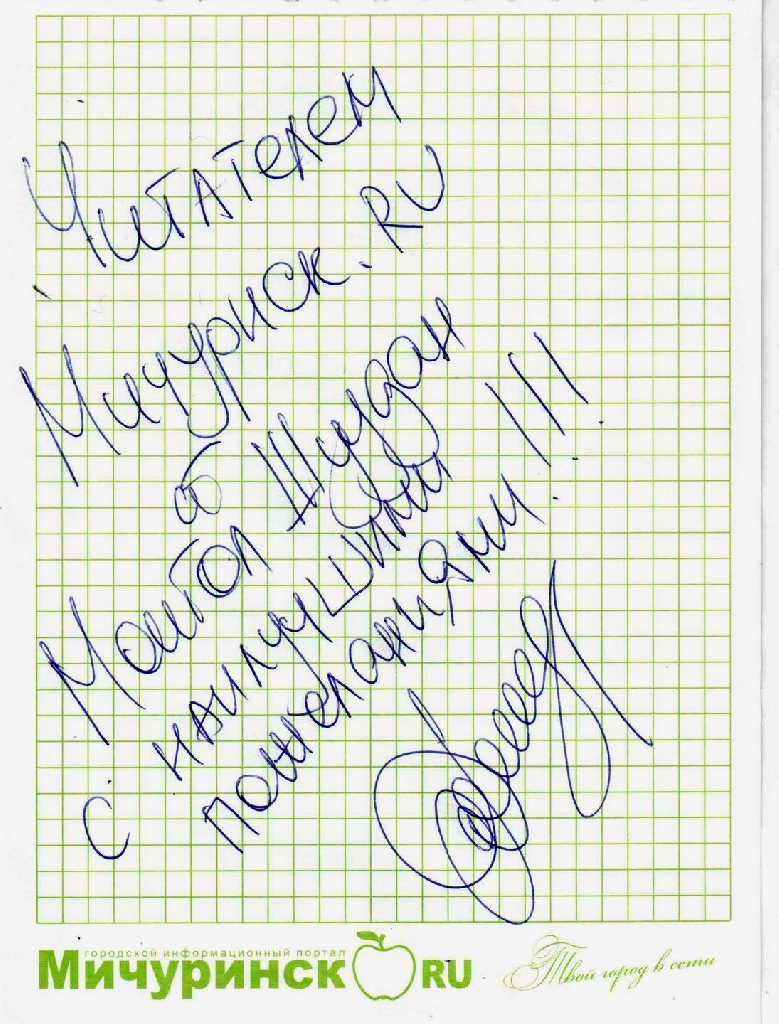 Читателем
Мичуриск.RU
от
Монгол Шуудан
с наилучшими
пожеланиями!!!
городской информационный портал
Мичуринск RU
Твой город в сети